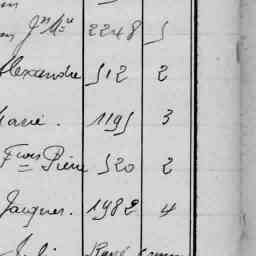 Jn Me 2248 5
Alexandre 512 2
Marie. 1195 3
Frois Pierre 520 2
Jacques. 1982 4